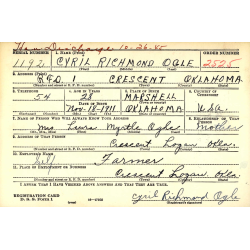 Hon. Discharge 10-26-45
SERIAL NUMBER 1. NAME ORDER NUMBER
1192 CYRIL RICHMOND OGLE 2525
2. ADDRESS
R.F.D. 1 CRESCENT OKLAHOMA
3. TELEPHONE 4. AGE IN YEARS 5. PLACE OF BIRTH 6. COUNTRY OF CITIZENSHIP
54 28 MARSHELL
DATE OF BIRTH
Nov. 18-1911 OKLAHOMA U.S.A.
7. NAME OF PERSON WHO WILL ALWAYS KNOW YOUR ADDRESS 8. RELATIONSHIP OF THAT PERSON
Mrs Laura Myrtle Ogle Mother
9. ADDRESS OF THAT PERSON
Crescent Logan Okla.
10. EMPLOYER'S NAME
Self Farmer
11. PLACE OF EMPLOYMENT OR BUSINESS
Crescent Logan Okla.
I AFFIRM THAT I HAVE VERIFIED ABOVE ANSWERS AND THAT THEY ARE TRUE.
REGISTRATION CARD
D. S. S. FORM 1
Cyril Richmond Ogle